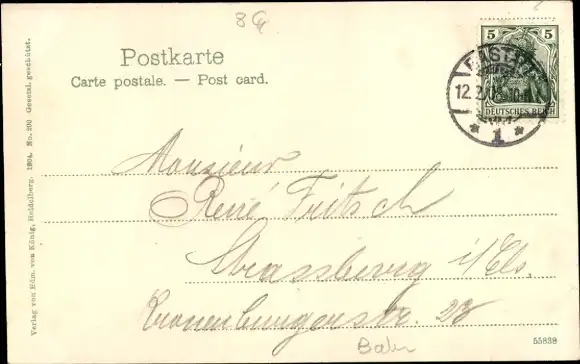 8
Postkarte
Carte postale. — Post card.
5 5
DEUTSCHES REICH
12.
* 1 *
Monsieur
René Fritsch
Strassburg i/Els.
Kronenburgerstr. 28
Bahn
55838
Verlag von Edm. von König, Heidelberg. 1904. No. 200 Gesetzl. geschützt.